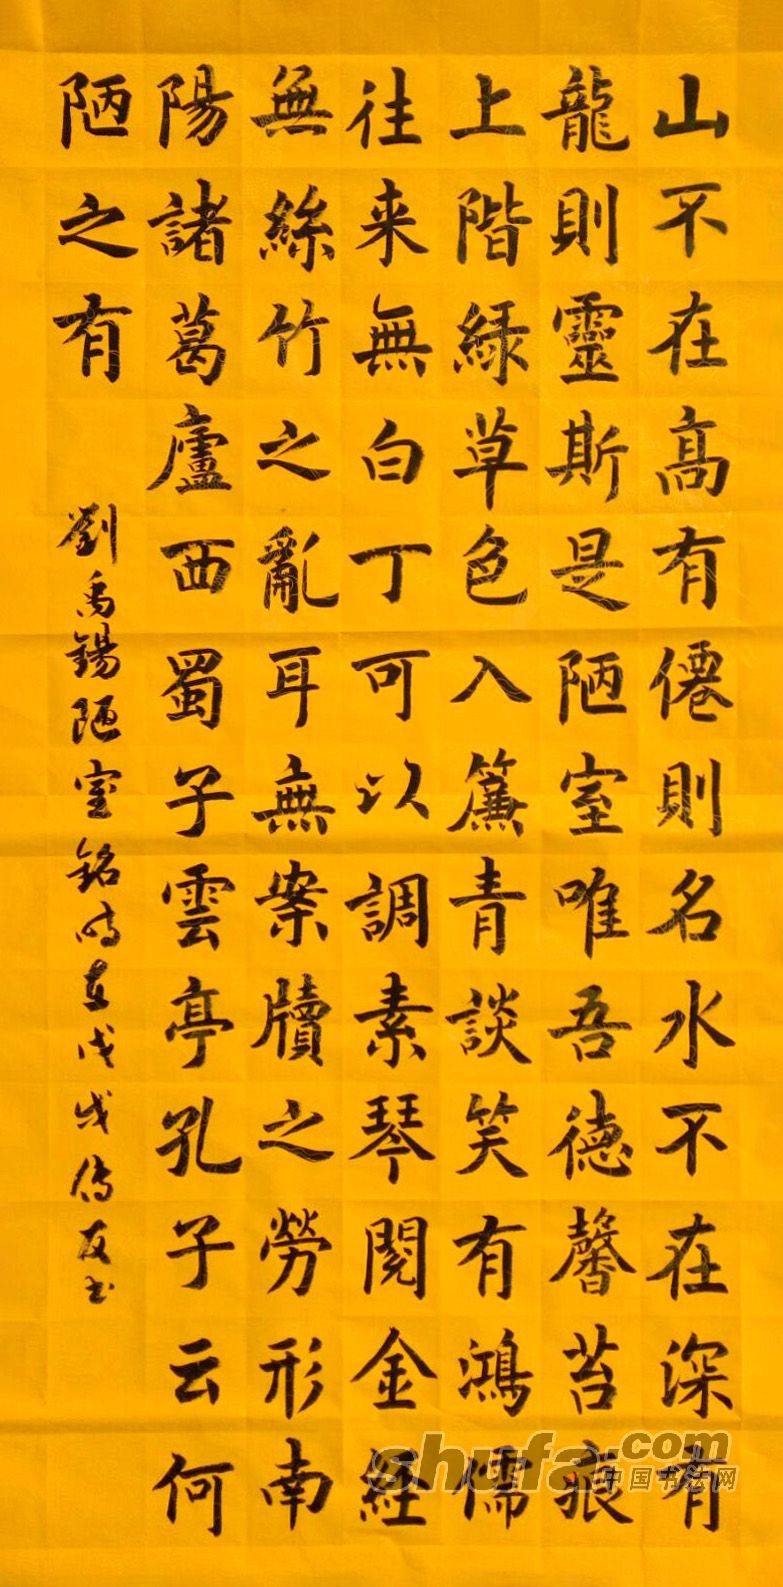 山不在髙有僊則名水不在深有
龍則靈斯是陋室唯吾德馨苔痕
上階緑草色入簾青談笑有鴻儒
往来無白丁可以調素琴閱金經
無絲竹之亂耳無案牘之勞形南
陽諸葛廬西蜀子雲亭孔子云何
陋之有
劉禹錫陋室銘時在戊戌傳友书
shufa.com
中国书法网